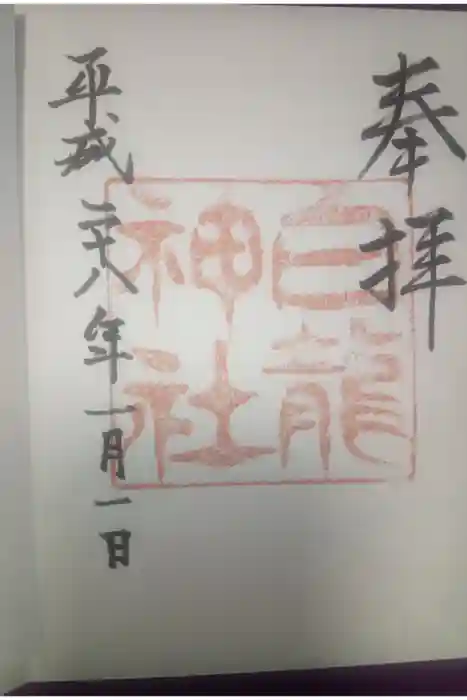 奉拝
白龍
神社
平成二十八年一月一日